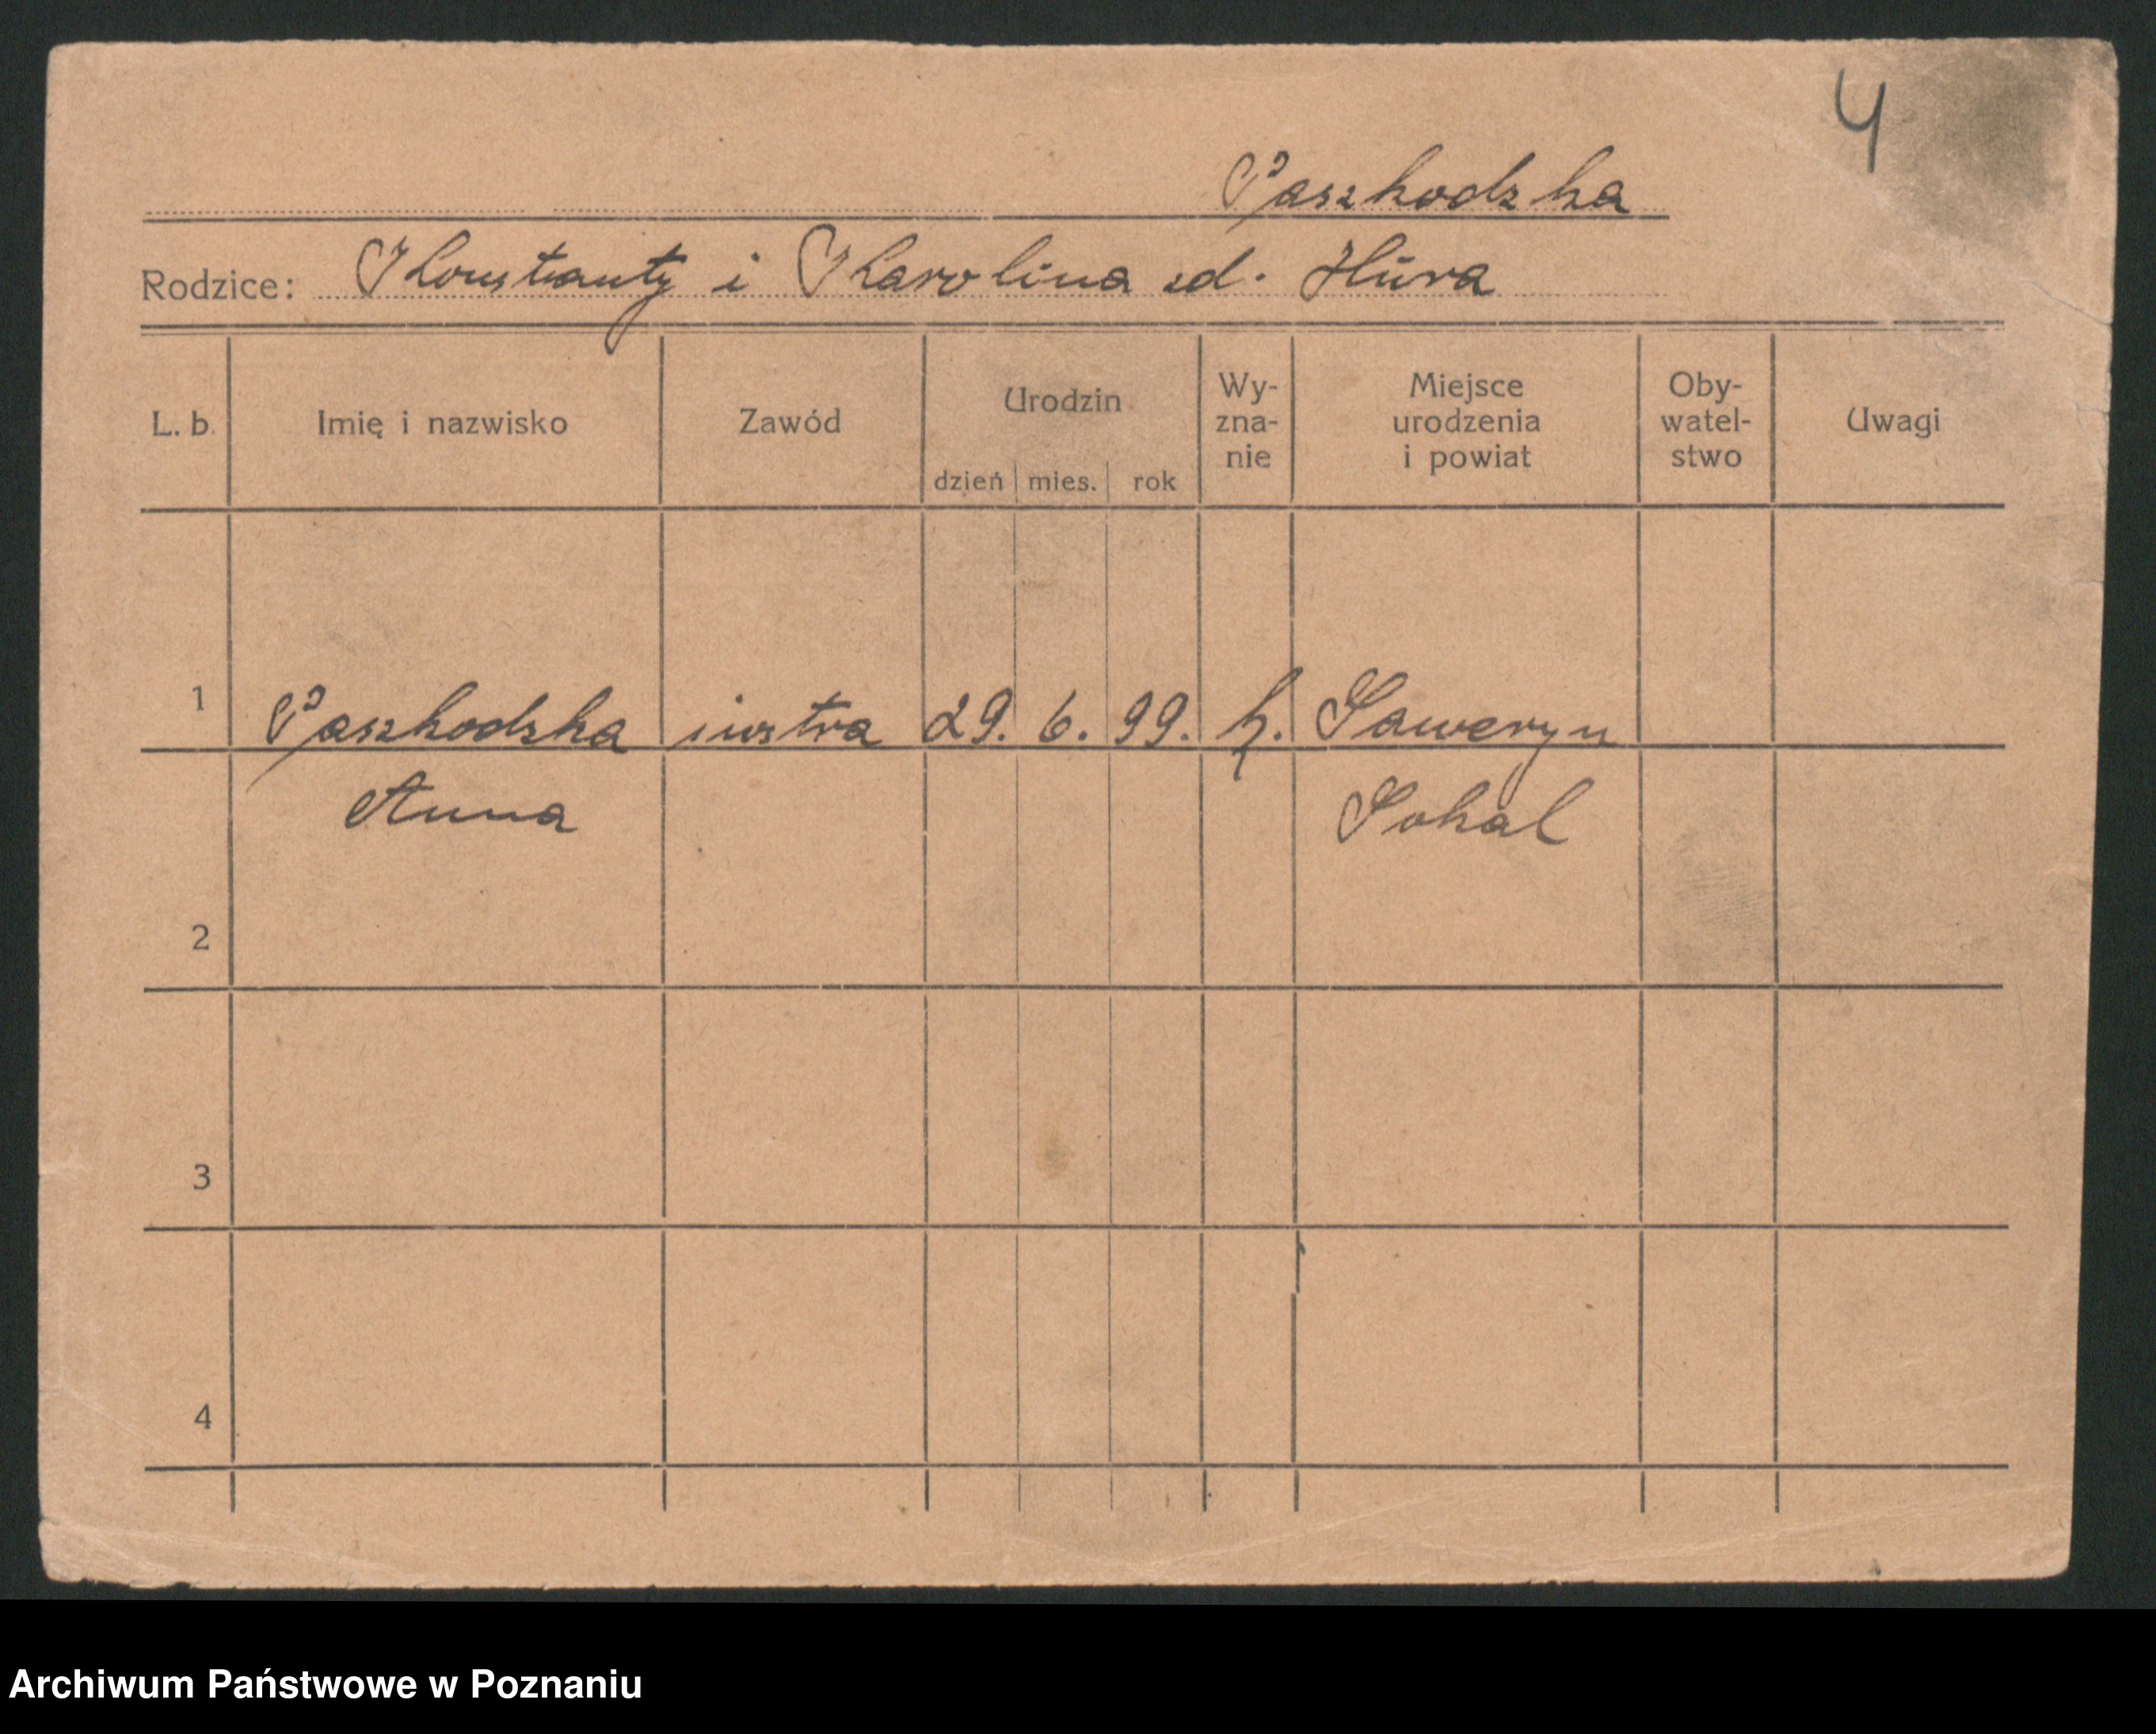 4
Paszkodzka
Rodzice: Konstanty i Karolina zd. Hüra
L. b. Imię i nazwisko Zawód Urodzin dzień mies. rok Wy-zna-nie Miejsce urodzenia i powiat Oby-watel-stwo Uwagi
1 Paszkodzka 29. 6. 99. k. Saweryn
Anna Sokal
2
3
4
Archiwum Państwowe w Poznaniu